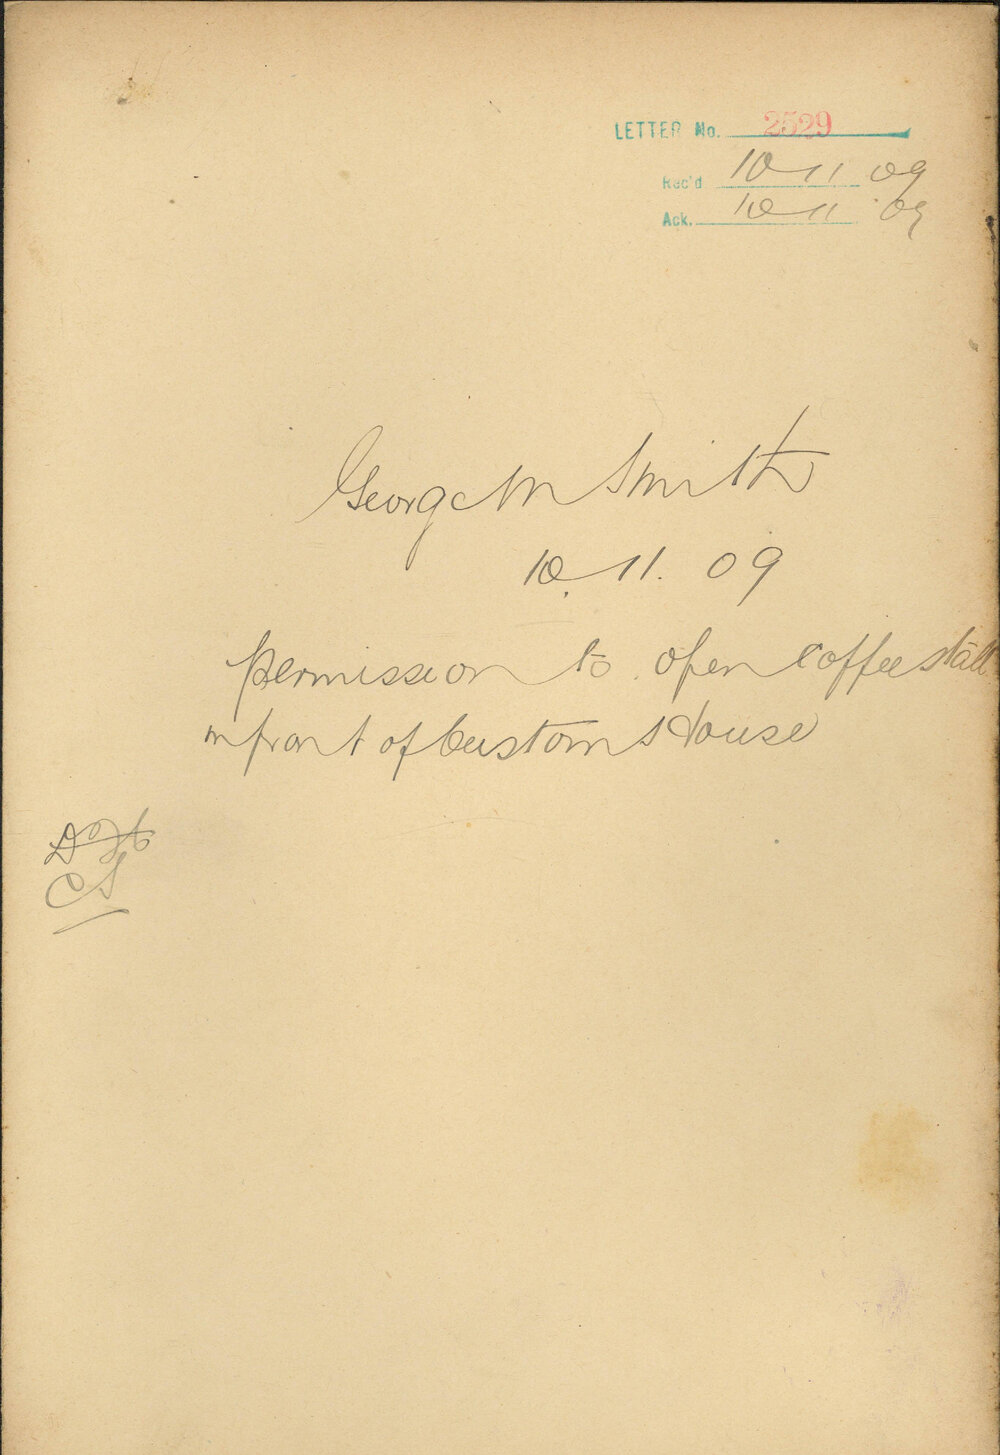 LETTER No. 2529
Rec'd 10 11 09
Ack. 10 11 09
George M Smith
10.11.09
permission to open coffee stall
in front of Customs House
CS